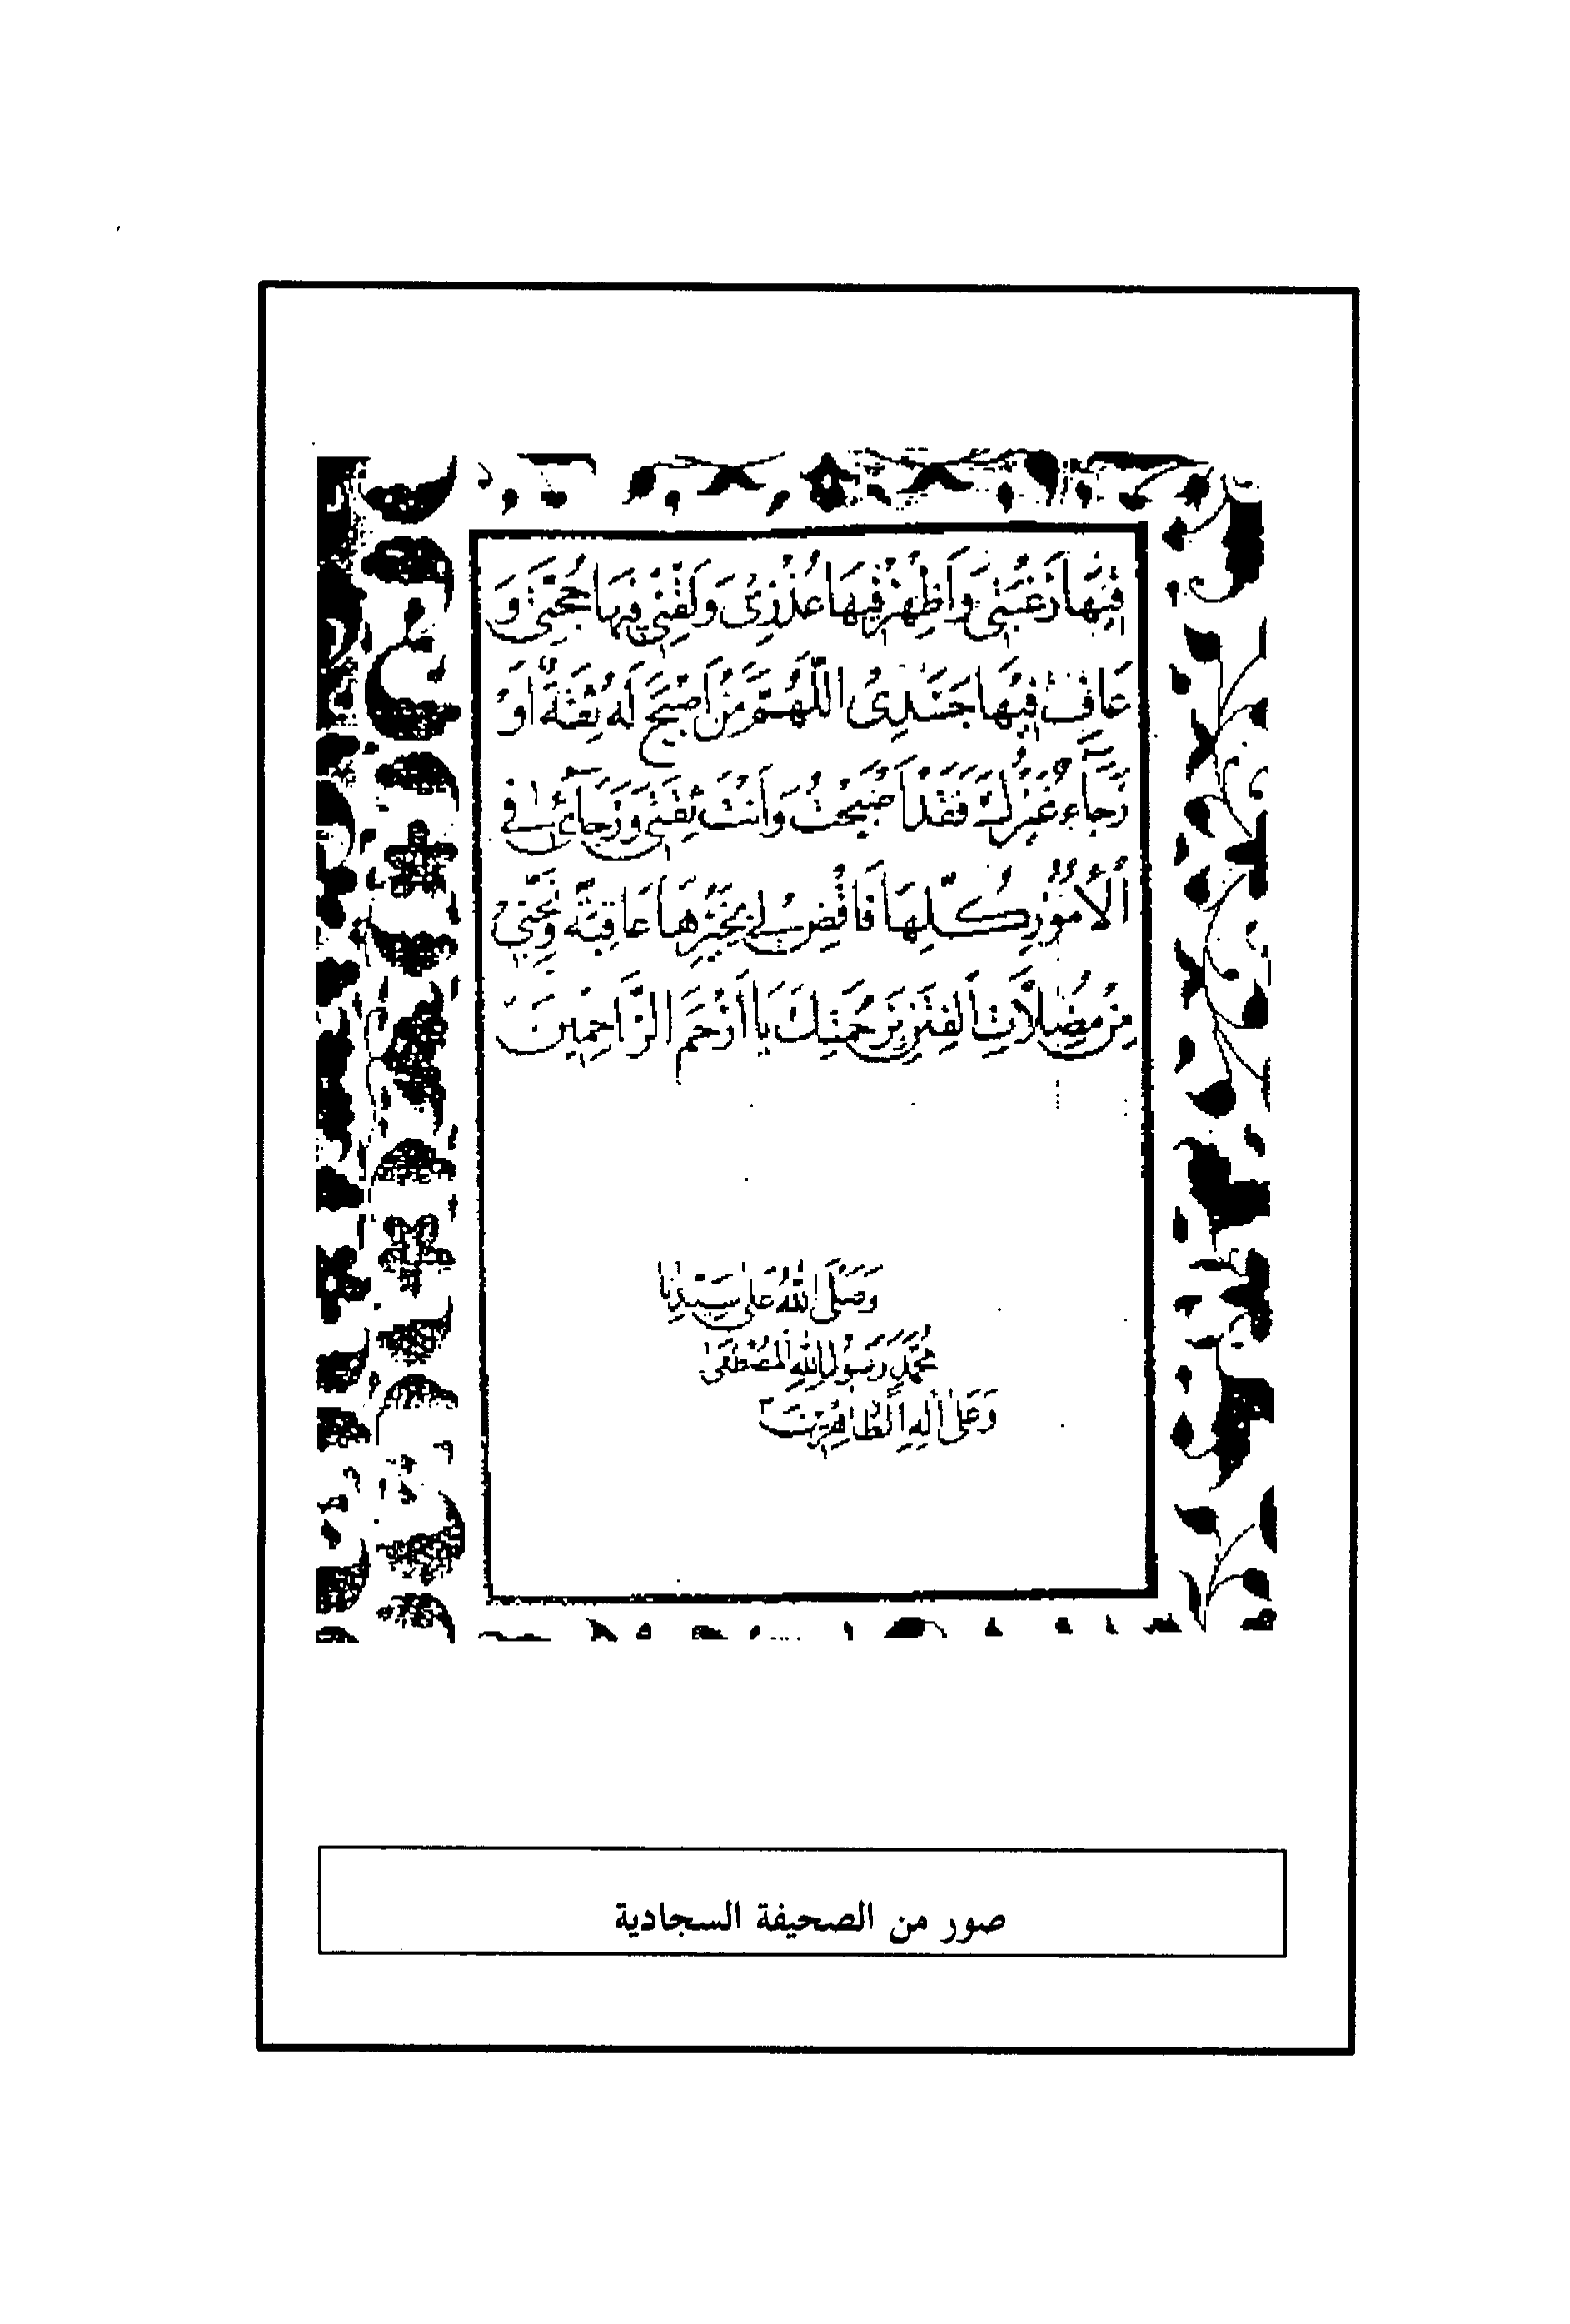 فِيهَا رَغْبَتِي وَاَظْهِرْ فِيهَا عُذْرِي وَلَقِّنِّي فِيهَا حُجَّتِي وَ
عَافِ فِيهَا جَسَدِي اَللّٰهُمَّ مَنْ اَصْبَحَ لَهُ ثِقَةٌ اَوْ
رَجَآءٌ غَيْرُكَ فَقَدْ اَصْبَحْتُ وَاَنْتَ ثِقَتِي وَرَجَآئِي فِي
اَلْاُمُورِ كُلِّهَا فَاقْضِ لِي بِخَيْرِهَا عَاقِبَةً وَنَجِّنِي
مِنْ مُضِلَّاتِ الْفِتَنِ بِرَحْمَتِكَ يَا اَرْحَمَ الرَّاحِمِينَ
وَصَلَّى اللّٰهُ عَلٰى سَيِّدِنَا
مُحَمَّدٍ رَسُولِ اللّٰهِ الْمُصْطَفٰى
وَعَلٰى اٰلِهِ الطَّاهِرِينَ
صور من الصحيفة السجادية